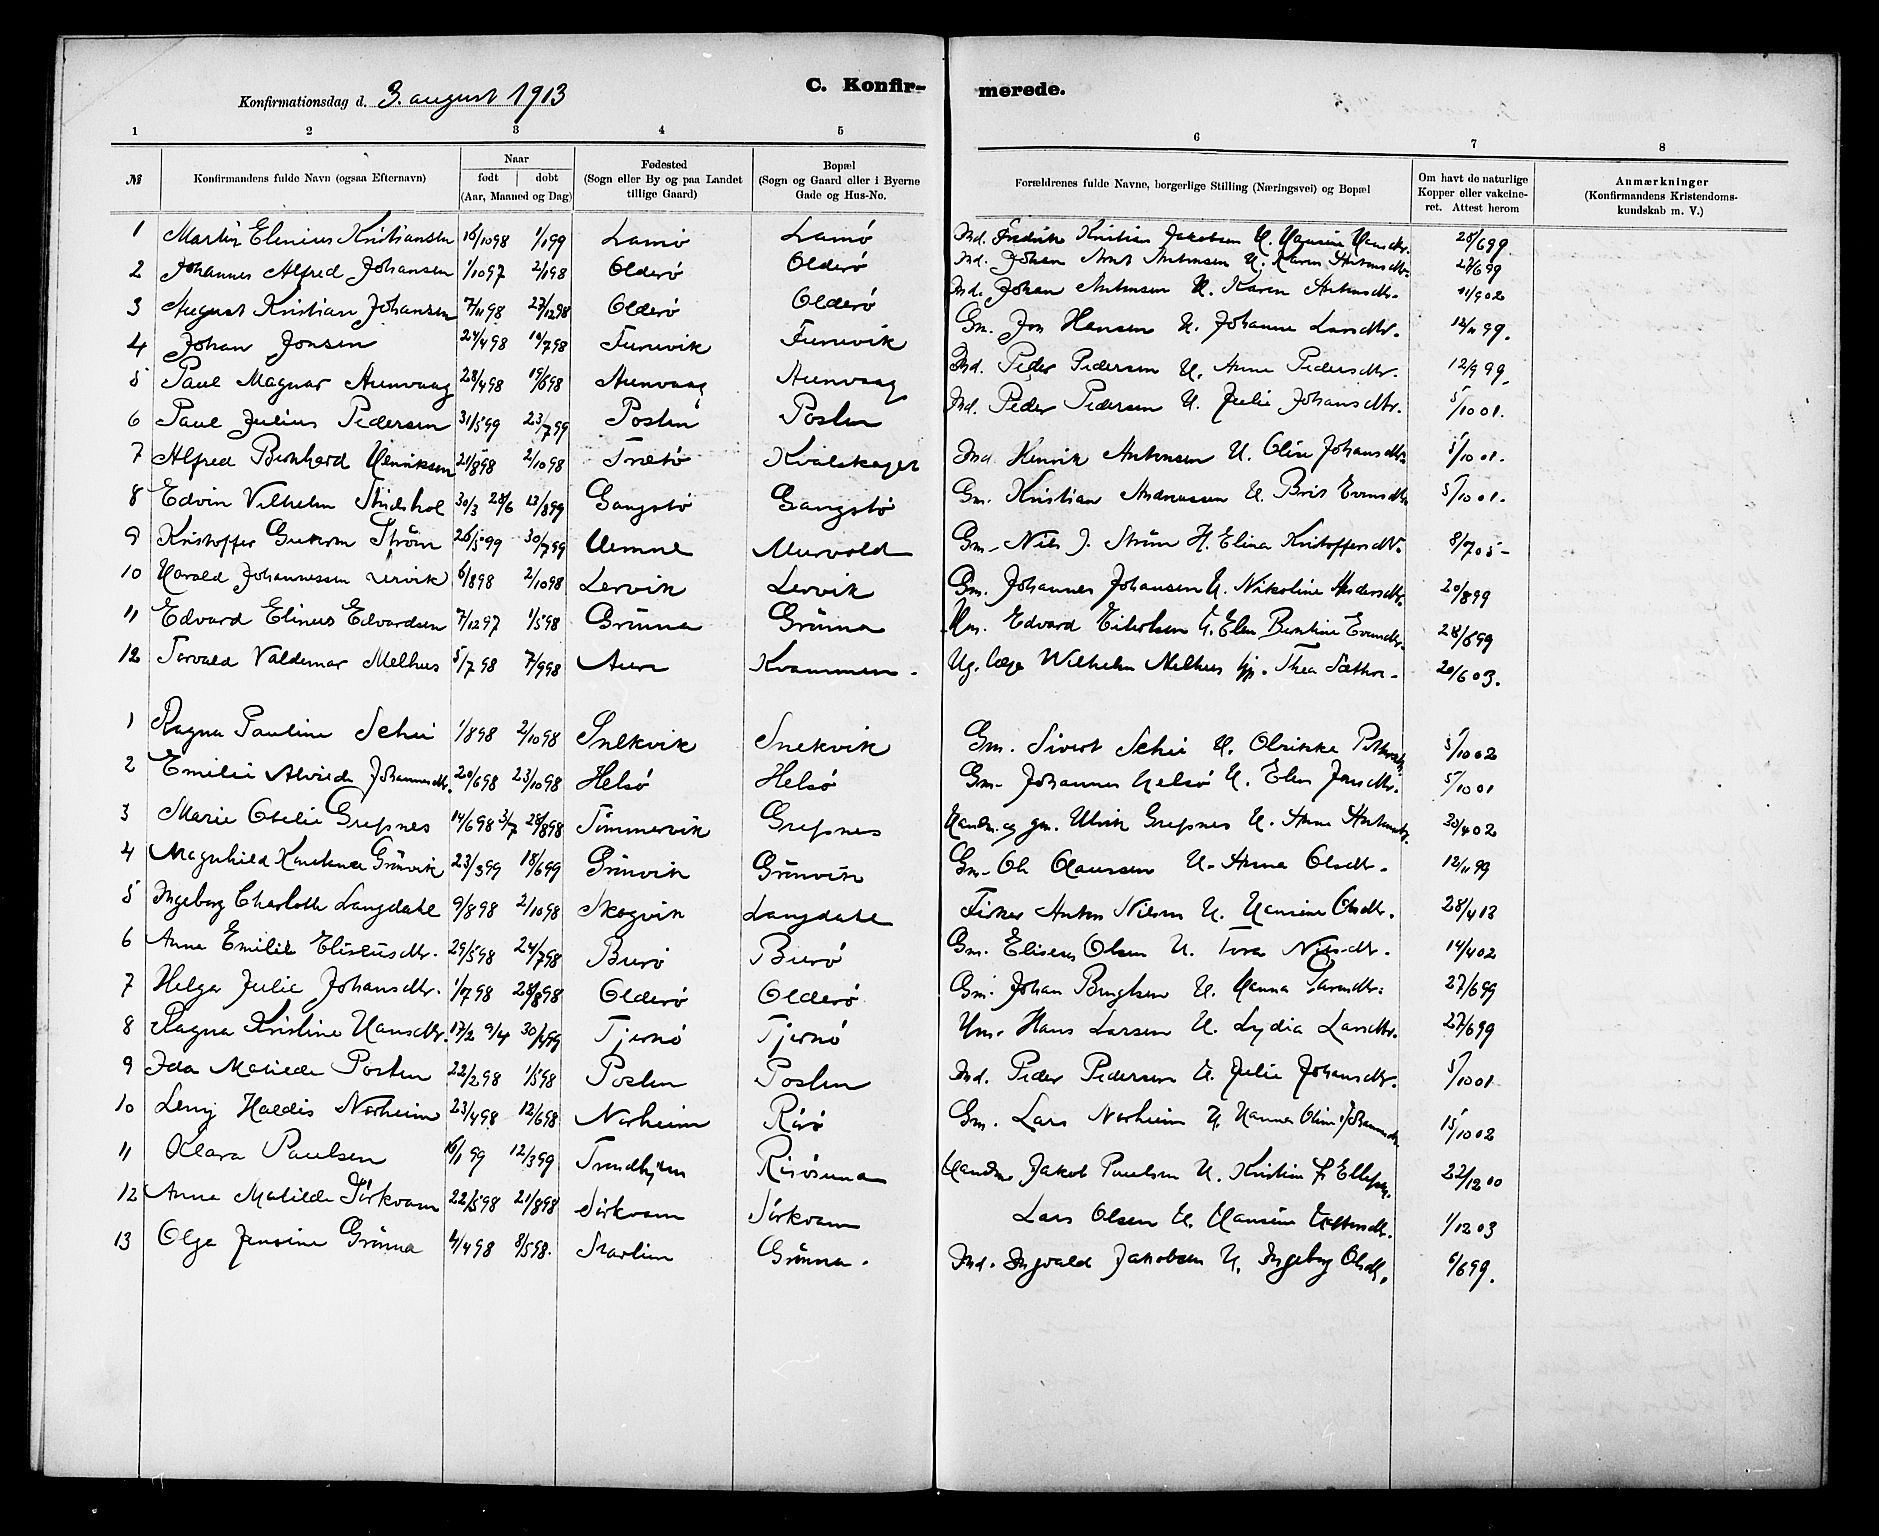 C. Konfir-
merede.
Konfirmationsdag d. 3. august 1913
1 2 3 4 5 6 7 8
№ Konfirmandens fulde Navn (ogsaa Efternavn) Naar født døbt (Aar, Maaned og Dag) Fødested (Sogn eller By og paa Landet tillige Gaard) Bopæl (Sogn og Gaard eller i Byerne Gade og Hus-No. Forældrenes fulde Navne, borgerlige Stilling (Næringsvei) og Bopæl Om havt de naturlige Kopper eller vakcineret. Attest herom Anmærkninger (Konfirmandens Kristendomskundskab m. V.)
1 Martin Elenius Kristiansen 16/10 98 1/1 99 Lamø Lamø Ind. Fredrik Kristian Jakobsen H. Hansine Hansdtr. 28/6 99
2 Johannes Alfred Johansen 1/10 97 2/1 98 Olderø Olderø Ind. Johan Antonsen H. Karen Antonsdtr. 27/6 99
3 August Kristian Johansen 7/11 98 27/12 98 Olderø Olderø Ind. Johan Antonsen H. Karen Antonsdtr. 11/9 02
4 Johan Jonsen 24/4 98 10/7 98 Furuvik Furuvik Gm. Jon Hansen H. Johanna Larsdtr. 12/11 99.
5 Paul Magnar Aunvaag 28/4 98 19/6 98 Aunvaag Aunvaag Ind. Peder Pedersen H. Anne Pedersdtr. 12/9 99.
6 Paul Julius Pedersen 31/5 99 23/7 99 Poslen Poslen Ind. Peder Pedersen H. Julie Johansdtr. 5/10 01.
7 Alfred Bernhard Henriksen 21/8 98 2/10 98 Trætø Kvalskaget Ind. Henrik Antonsen H. Olise Johansdtr. 5/10 01.
8 Edvin Vilhelm 30/3 28/6 13/8 99 Gangstø Gangstø Gm. Kristian Andreassen H. Brit Evensdtr 5/10 01.
9 Kristoffer Strøm 26/5 99 30/7 99 Hemne Murvold Gm. Nils J. Strøm H. Elina Kristoffersdtr. 8/7 05-
10 Harald Johannessen Lervik 6/8 98 2/10 98 Lervik Lervik Gm. Johannes Johansen H. Nikoline Andersdtr. 20/8 99
11 Edvard Elinus Edvardsen 7/12 97 1/5 98 Grønna Grønna Hm. Edvard H. Elen Berntine Evensdtr. 28/6 99
12 Torvald Valdemar Melhus 5/7 98 7/9 98 Aure Kvammen. Ug. Wilhelm Melhus Thea Sæther. 20/6 03.
1 Ragna Pauline Schei 1/8 98 2/10 98 Snekvik Snekvik Gm. Sivert Schei H. Olrikke 5/10 02
2 Emilie Alvilde Johannesdtr. 20/6 98 23/10 98 Helsø Helsø Gm. Johannes Helsø H. Elen Jonsdtr. 5/10 01
3 Marie Otelie Grefsnes 14/6 98 3/7 28/8 98 Tømmervik Grefsnes Handm. og gm. Ulrik Grefsnes H. Anne 30/4 02
4 Magnhild Konstanse Grønvik 23/3 99 18/6 99 Grønvik Grønvik Gm. Ole Olaussen H. Anna Olsdtr. 12/11 99
5 Ingeborg Charlotte Langdahl 9/8 98 2/10 98 Skogvik Langdahl Fisker Anton Nilsen H. Hansine Olsdtr. 28/4 13
6 Anna Emilie Eliseusdtr. 29/5 98 24/7 98 Burø Burø Gm. Eliseus Olsen H. Tora Nilsdtr. 14/4 02
7 Helga Julie Johansdtr. 1/7 98 28/8 98 Olderø Olderø Gm. Johan Bengtsen H. Hanna Larsdtr. 27/6 99
8 Ragna Kristine Hansdtr. 17/2 9/4 30/4 99 Tjernø Tjernø Hm. Hans Larsen H. Lydia Larsdtr. 27/6 99
9 Ida Matilde Poslen 22/2 98 1/5 98 Poslen Poslen Ind. Peder Pedersen H. Julie Johansdtr. 5/10 01
10 Leny Haldis Norheim 23/4 98 12/6 98 Norheim Rørø Gm. Lars Norheim H. Hanna Oline 15/10 02
11 Klara Paulsen 16/1 99 12/3 99 Trondhjem Risøsund Handm Jakob Paulsen H. Kristine 22/12 10
12 Anna Matilde Størkvam 22/5 98 21/8 98 Størkvam Størkvam Lars Olsen H. Hansine 1/12 03
13 Olga Jensine Grønna 4/4 98 8/5 98. Skarlien Grønna. Ind. Ingvald Jakobsen H. Ingeborg Olsdtr. 6/6 99.